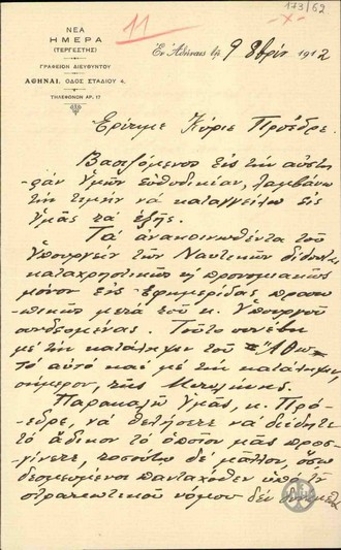 173/52
11
ΝΕΑ
ΗΜΕΡΑ
(ΤΕΡΓΕΣΤΗΣ)
ΓΡΑΦΕΙΟΝ ΔΙΕΥΘΥΝΤΟΥ
ΑΘΗΝΑΙ, ΟΔΟΣ ΣΤΑΔΙΟΥ 4.
ΤΗΛΕΦΩΝΟΝ ΑΡ. 17
Ἐν Ἀθήναις τῇ 9 8βρίου 1912
Ἐρίτιμε Κύριε Πρόεδρε.
Βασιζόμενος εἰς τὴν αὐστη-
ρὰν ὑμῶν εὐθυδικίαν, λαμβάνω
τὴν τιμὴν νὰ καταγγείλω εἰς
ὑμᾶς τὰ ἑξῆς.
Τὰ ἀνακοινωθέντα τοῦ
Ὑπουργείου τῶν Ναυτικῶν δίδονται
καταχρηστικῶς ἢ προνομιακῶς
μόνον εἰς ἐφημερίδας προσω-
πικῶς μετὰ τοῦ κ. Ὑπουργοῦ
συνδεομένας. Τοῦτο συνέβη
μὲ τὴν κατάληψιν τοῦ "Ἄθω"
τὸ αὐτὸ καὶ μὲ τὴν κατάληψιν,
σήμερον, τῆς Μιτυλήνης.
Παρακαλῶ ὑμᾶς, κ. Πρό-
εδρε, νὰ θελήσετε νὰ δείξητε
τὸ ἄδικον τὸ ὁποῖον μᾶς προσ-
γίνεται, τοσούτῳ δὲ μᾶλλον, ὅσῳ
δεσμευόμενοι πανταχόθεν ὑπὸ τοῦ
στρατιωτικοῦ νόμου δὲν